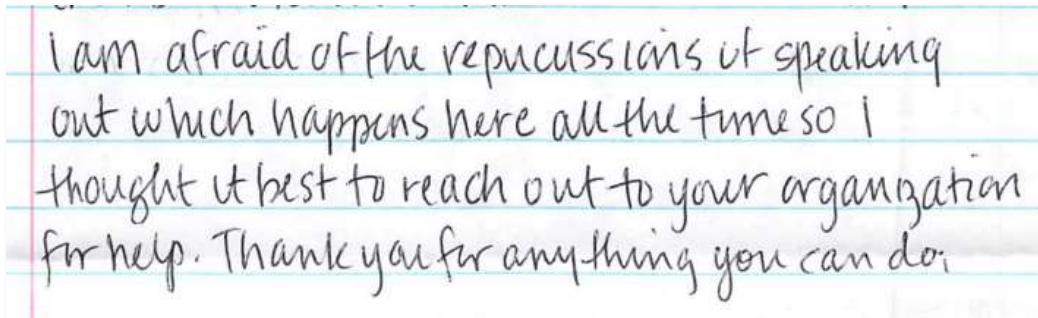 I am afraid of the repucussions of speaking
out which happens here all the time so I
thought it best to reach out to your organization
for help. Thank you for anything you can do.